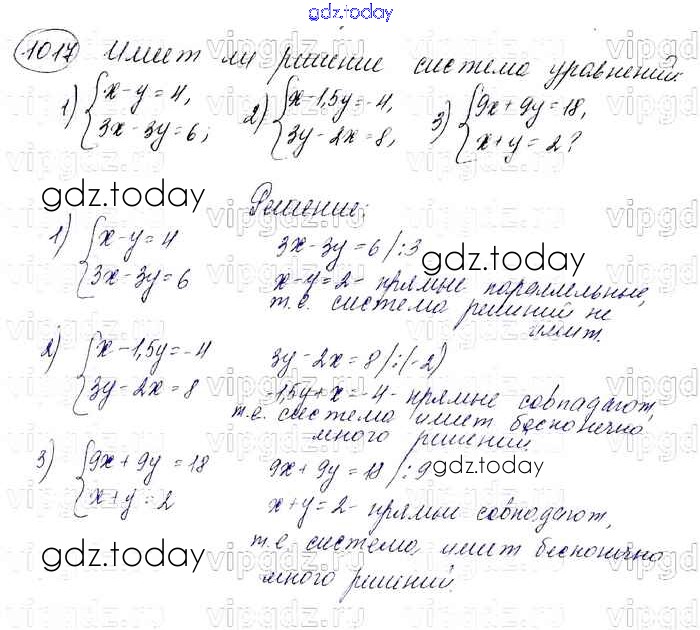 gdz.today
1017 Имеет ли решение система уравнений:
1) { x - y = 4, 3x - 3y = 6; 2) { x - 1,5y = -4, 3y - 2x = 8, 3) { 9x + 9y = 18, x + y = 2?
gdz.today
Решение:
1) { x - y = 4 3x - 3y = 6 3x - 3y = 6 /:3
gdz.today
x - y = 2 - прямые параллельные,
т.е. система решений не
имеет.
2) { x - 1,5y = -4 3y - 2x = 8 3y - 2x = 8 /:(-2)
-1,5y + x = -4 - прямые совпадают,
т.е. система имеет бесконечно
много решений.
3) { 9x + 9y = 18 x + y = 2 9x + 9y = 18 /:9
gdz.today
x + y = 2 - прямые совпадают,
gdz.today
т.е. система имеет бесконечно
много решений.